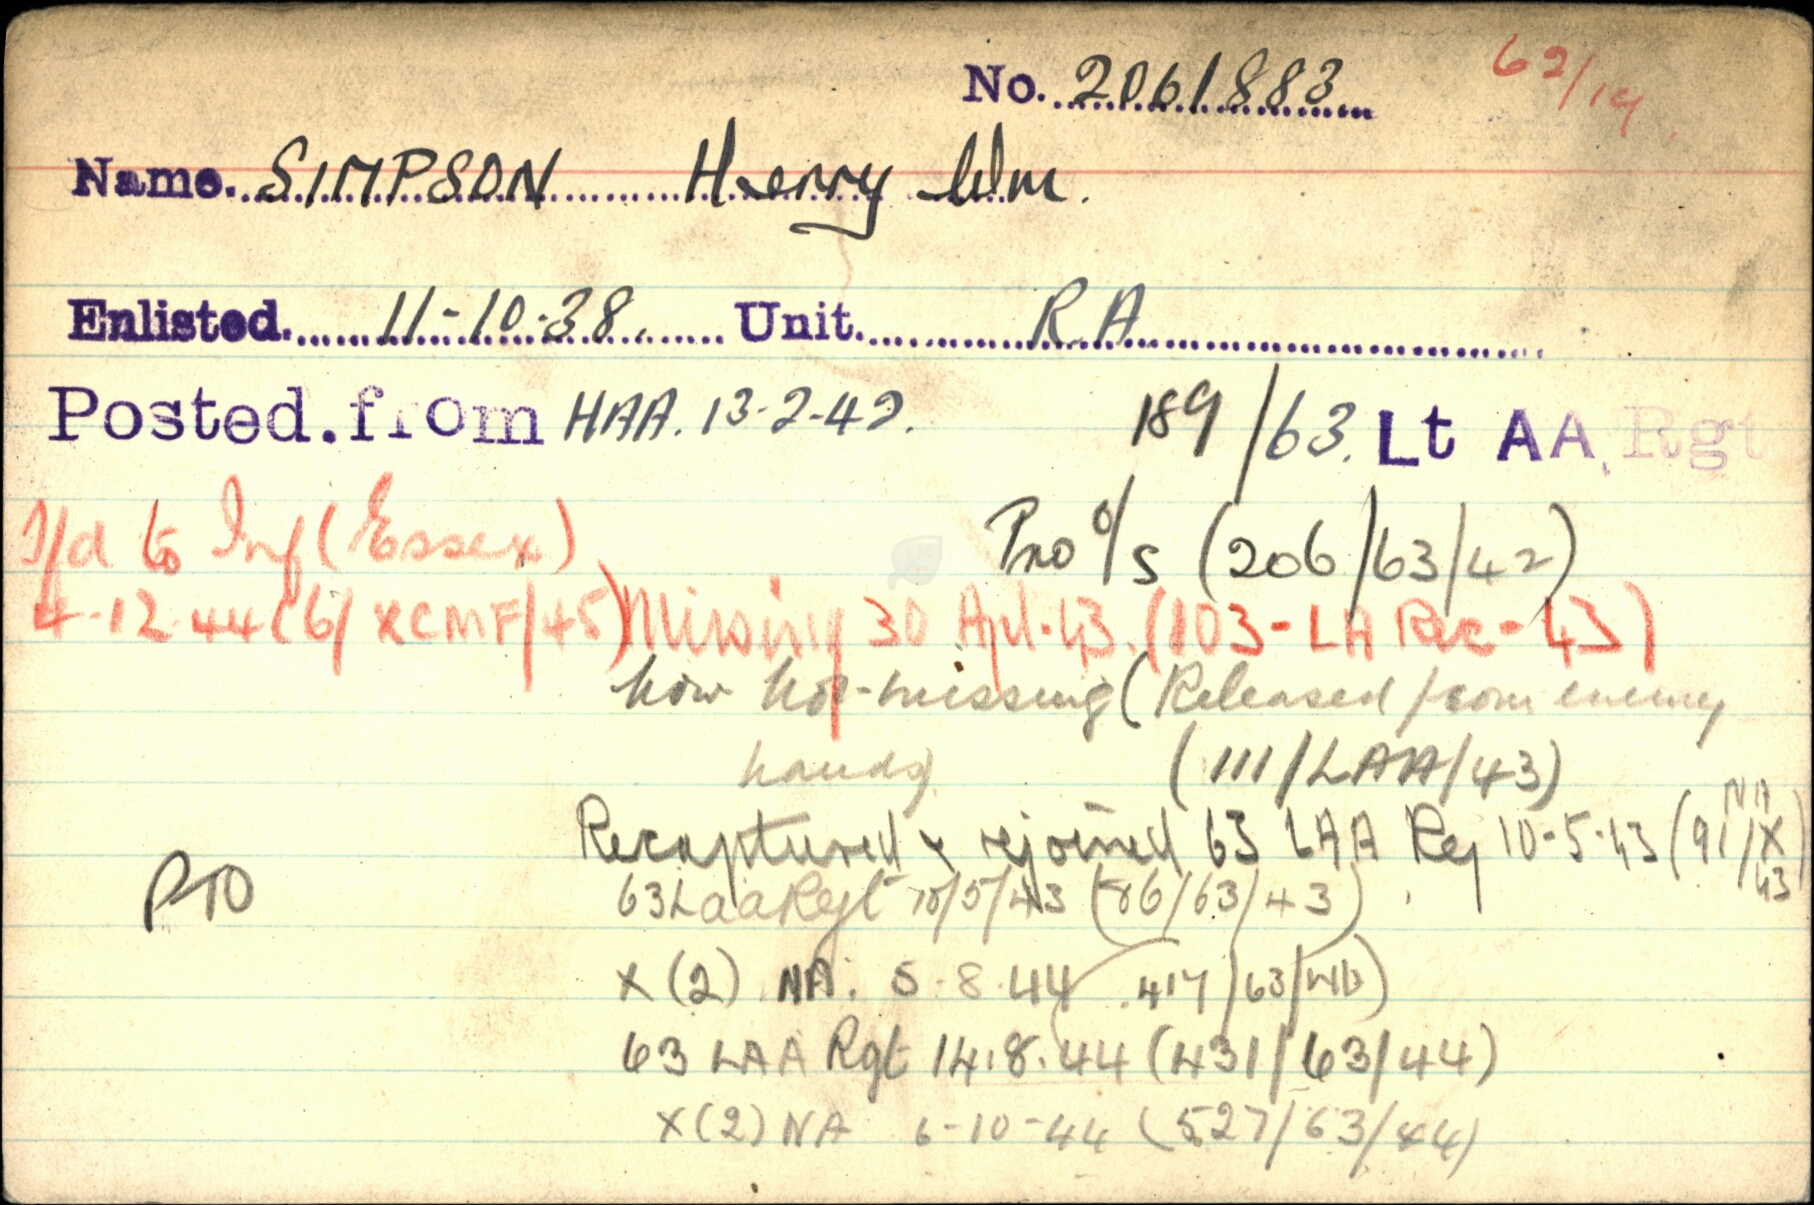 No. 2061883 62/14
Name. SIMPSON Henry Wm.
Enlisted. 11-10-38. Unit. R.A
Posted. from HAA. 13-2-42. 189/63. Lt AA. Rgt
T/d to Inf (Essex) Pro o/s (206/63/42)
4-12-44 (6/XCMF/45) Missing 30 Apl. 43. (103-LA Rec-43)
Now Not-missing (Released from enemy
hands) (111/LAA/43)
Recaptured & rejoined 63 LAA Reg 10-5-43 (91/X NA 43)
PTO
63 Laa Regt 10/5/43 (86/63/43)
X(2) NA. 5-8-44 (417/63/44)
63 LAA Rgt 14.8.44 (431/63/44)
X(2) NA 6-10-44 (527/63/44)